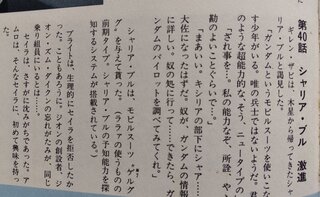 第40話　シャリア・ブル　激進
キレン・ザビは、木星から帰ってきたシャ
リア・ブルと謁見
「ガンダムというモビルスーツを使いこな
す少年がいる。唯の兵士ではないようだ。君
のような超能力的な、そう、ニュータイプの
勘のよいことぐらいで…」
「され事を…。私の能力なぞ、所詮、や
「まあいい。キシリアの部下にシャア
大佐になったはずだ。奴が、ガンダムの情報
に詳しい。奴の処に行って……できたら、ガ
ンダムのパイロットを調べてみてくれ。」
シャリア・ブルは、モビルスーツ　ゲルグ
グ　を与えて貰った。（ララァの使うものの
前期タイプ。シャリア・ブルの予知能力を探
知するシステムが搭載されている。）
ブライトは、生理的にセイラを拒否したか
った。こともあろうに、ジオンの創設者、ジ
オン・ズム・ダイクンの忘れがたみが、同じ
乗り組員にいるとは……。
セイラは、さすがに沈みがちであった。ア
ムロはセイラに、初めて興味を持っ